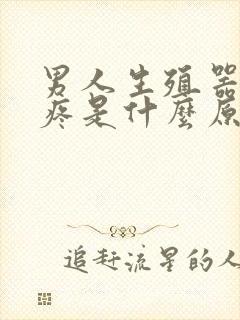 男人生殖器
疼是什麼原
追赶流星的人